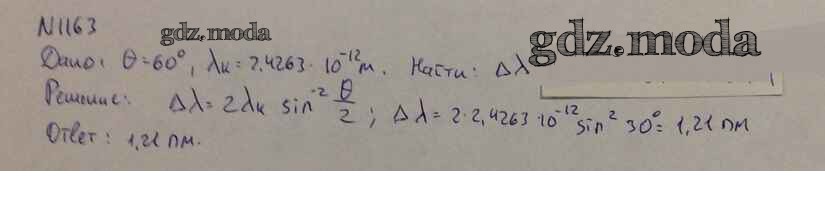 N1163
gdz.moda
gdz.moda
Дано: θ=60°, λк=2,4263·10⁻¹²м. Найти: Δλ
Решение: Δλ=2λк sin⁻² θ/2; Δλ=2·2,4263·10⁻¹² sin² 30°= 1,21 пм
Ответ: 1,21 пм.